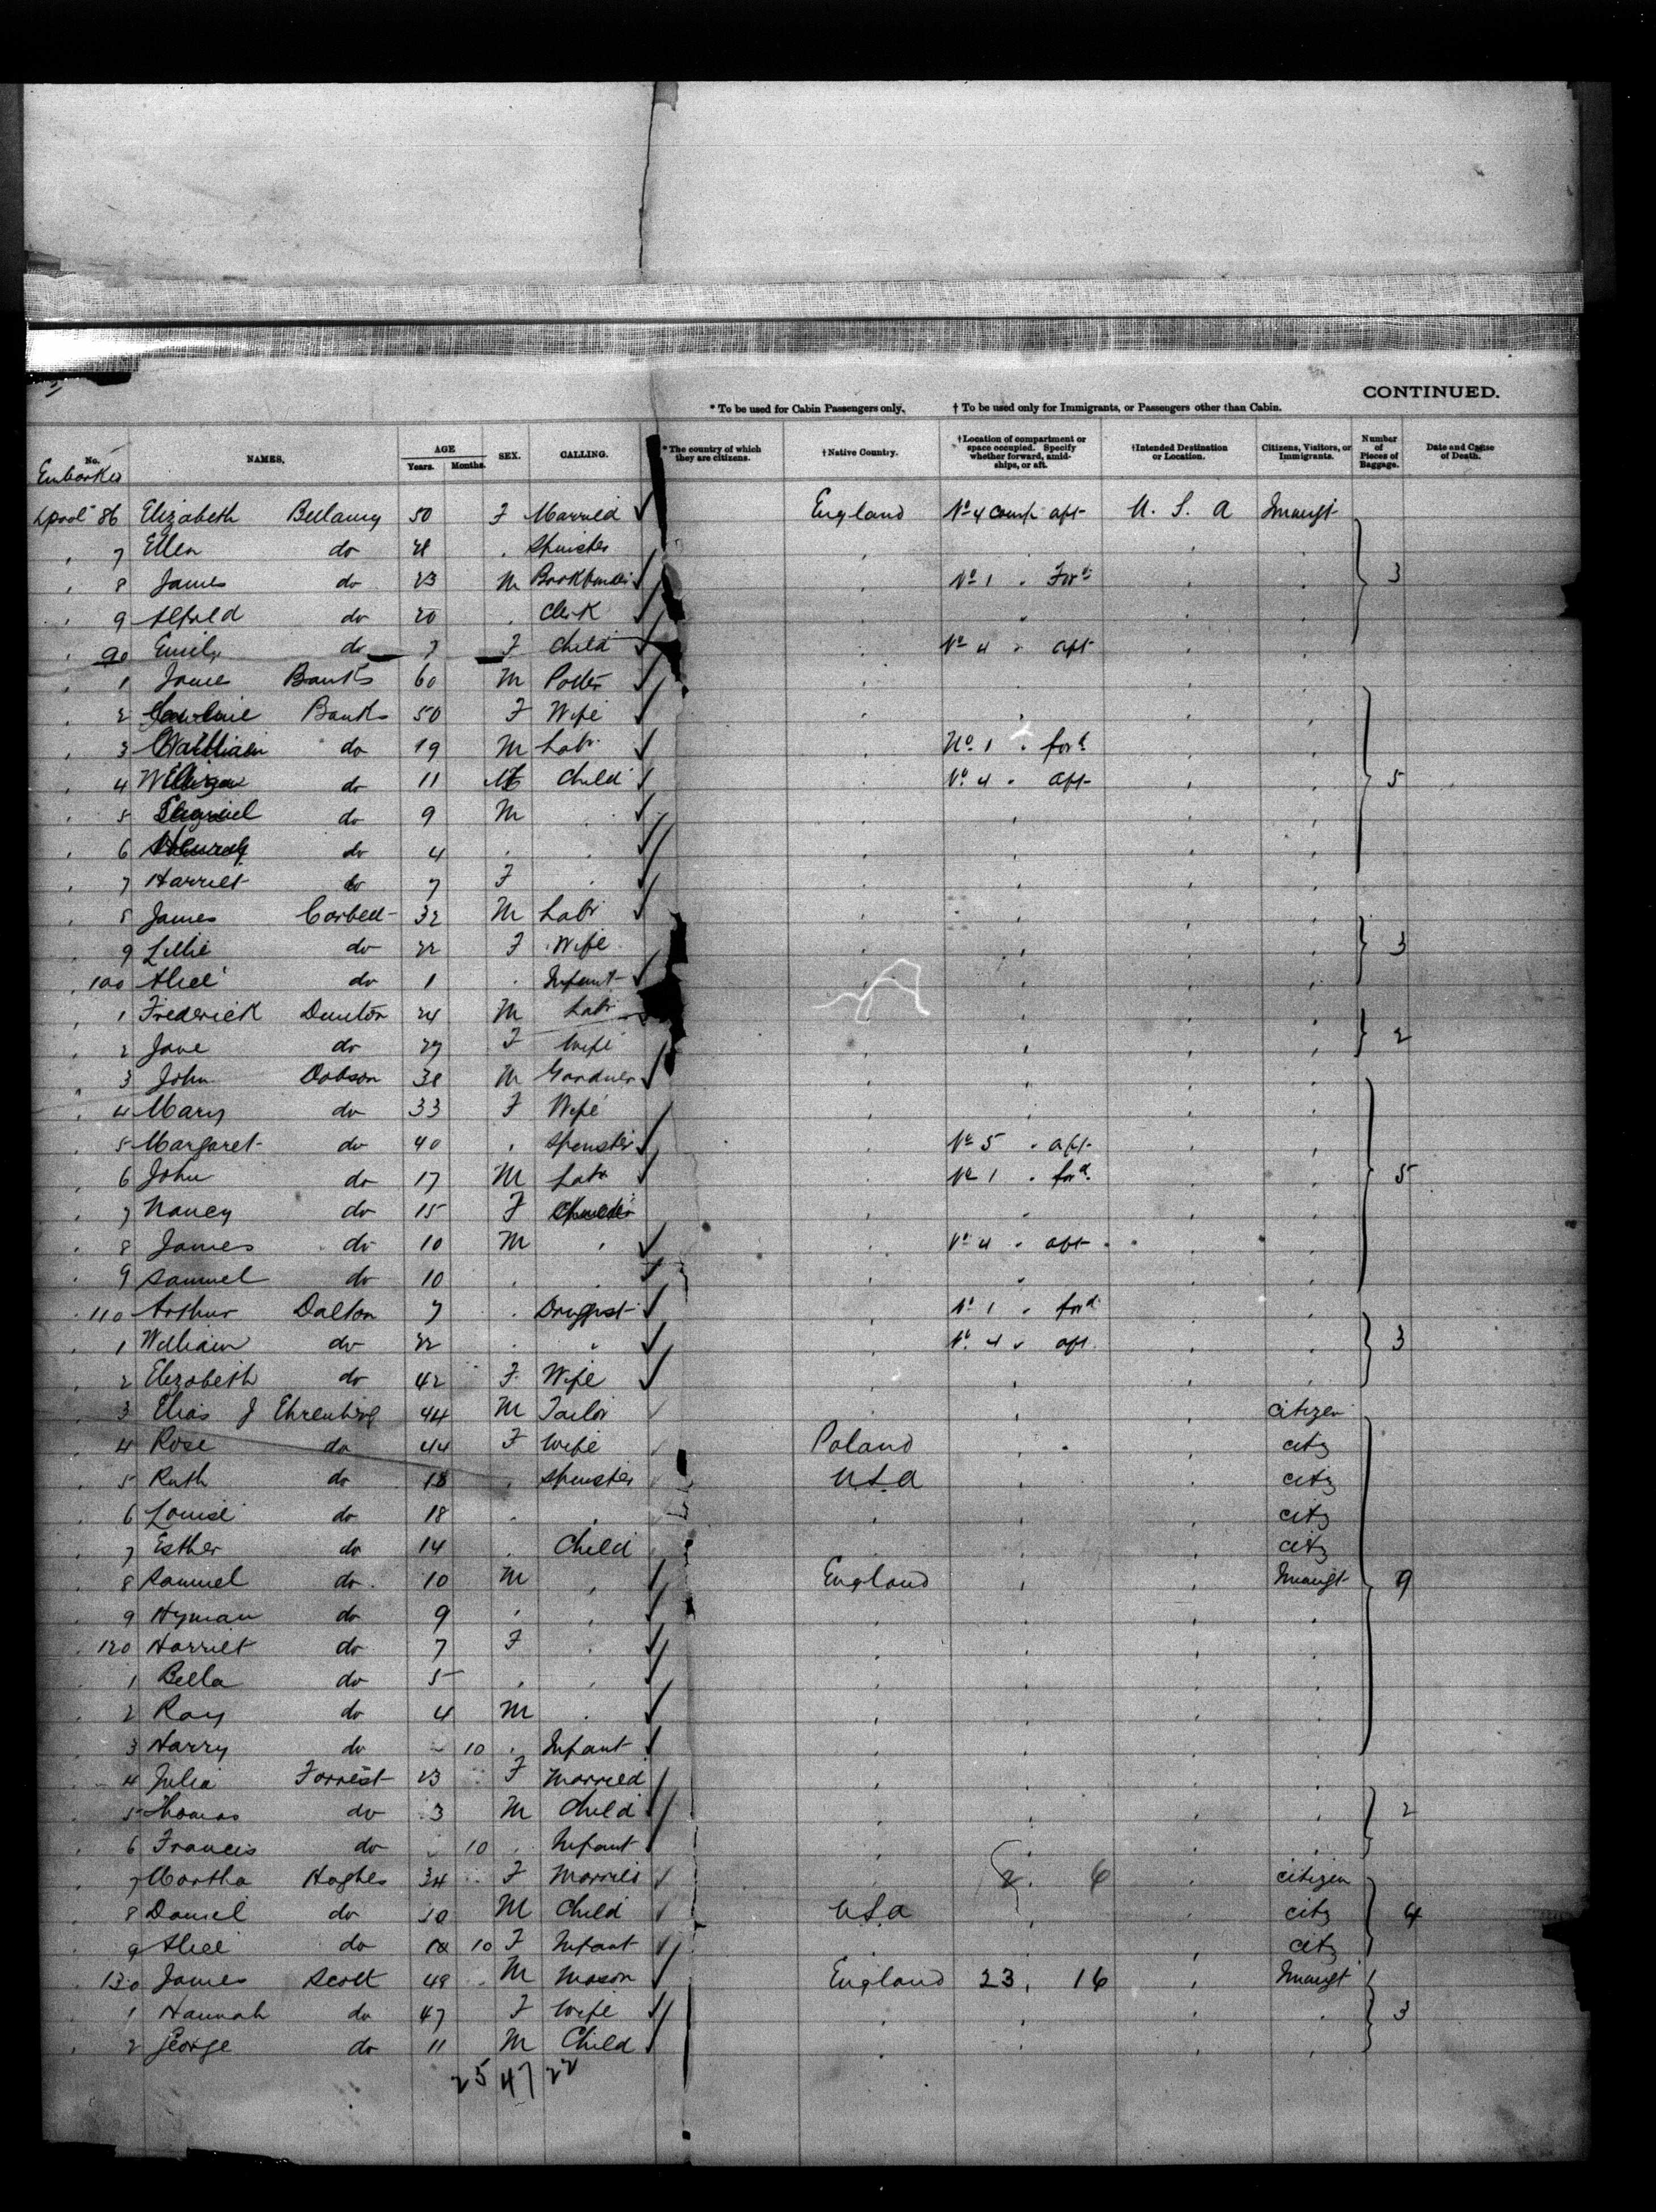 CONTINUED.
* To be used for Cabin Passengers only. † To be used only for Immigrants, or Passengers other than Cabin.
No. NAMES. AGE Years. Months. SEX. CALLING. * The country of which they are citizens. † Native Country. † Location of compartment or space occupied. Specify whether forward, amidships, or aft. † Intended Destination or Location. Citizens, Visitors, or Immigrants. Number of Pieces of Baggage. Date and Cause of Death.
Embarked
Lpool 86 Elizabeth Bellamy 50 F Married England No 4 comp aft U. S. A Immigt
7 Ellen do Spinster
8 James do 23 M Bookbinder No 1 " Ford 3
9 Alfred do 20 " Clerk
90 Emily do 7 F Child No 4 " aft
1 James Banks 60 M Potter
2 Banks 50 F Wife
3 William do 19 M Labr No 1 " ford
4 do 11 F Child No 4 " aft 5
5 do 9 M "
6 do 4 " "
7 Harriet do 7 F "
8 James Corbett 32 M Labr
9 Lillie do 22 F Wife 3
100 Alice do 1 " Infant
1 Frederick Dunton 24 M Labr
2 Jane do 27 F Wife 2
3 John Dobson 38 M Gardner
4 Mary do 33 F Wife
5 Margaret do 40 " Spinster No 5 " aft
6 John do 17 M Labr No 1 " ford 5
7 Nancy do 15 F
8 James do 10 M " No 4 " aft
9 Samuel do 10 " "
110 Arthur Dalton 7 " Druggist No 1 " ford
1 William do 22 " " No 4 " aft 3
2 Elizabeth do 42 F Wife
3 Elias J Ehrenberg 44 M Tailor citizen
4 Rose do 44 F Wife Poland citz
5 Ruth do 18 " Spinster U.S.A citz
6 Louise do 18 " " citz
7 Esther do 14 " Child citz
8 Samuel do 10 M " England Immigt 9
9 Hyman do 9 " "
120 Harriet do 7 F "
1 Bella do 5 " "
2 Ray do 4 M "
3 Harry do 10 " Infant
4 Julia Forrest 23 F Married
5 Thomas do 3 M Child 2
6 Francis do 10 " Infant
7 Martha Hughes 34 F Married 2 6 citizen
8 Daniel do 10 M Child U.S.A citz 4
9 Alice do 10 F Infant citz
130 James Scott 49 M Mason England 23 16 Immigt
1 Hannah do 47 F Wife 3
2 George do 11 M Child
25 47 22